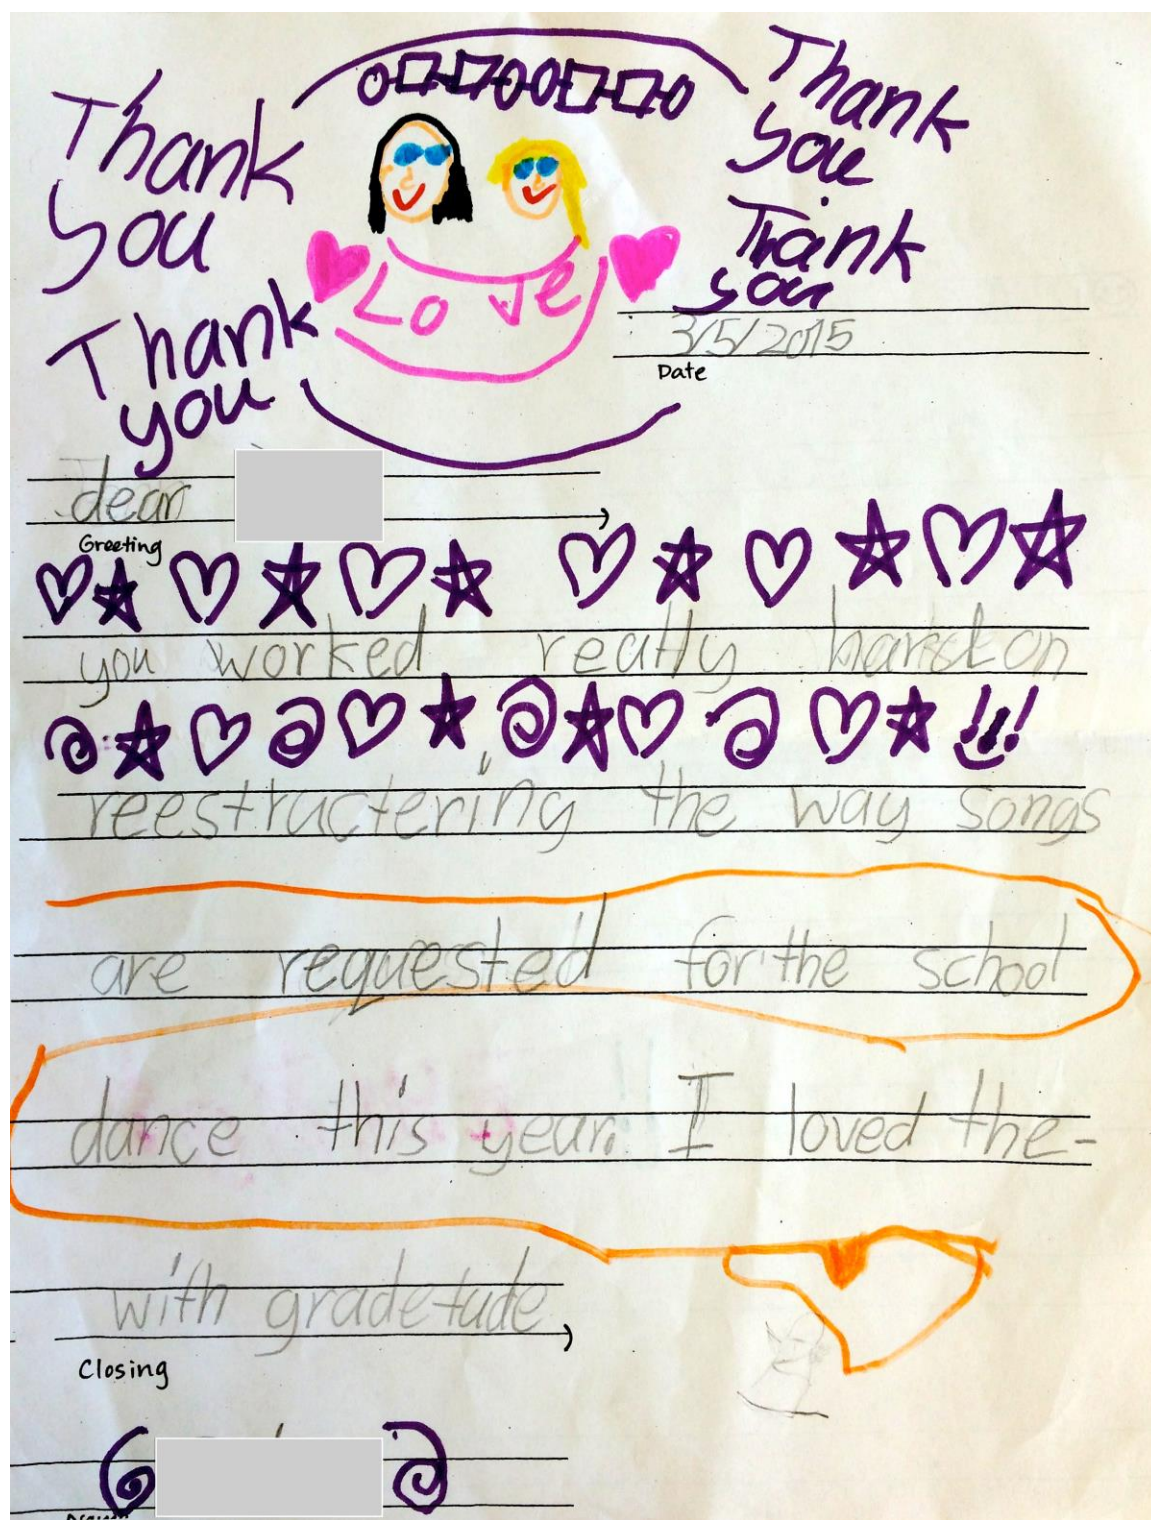 Thank
you
Thank
you
Thank
you
Thank
you
Love
3/5/2015
Date
dear
Greeting
you worked really hard on
reestructering the way songs
are requested for the school
dance this year. I loved the-
with gradetude
Closing